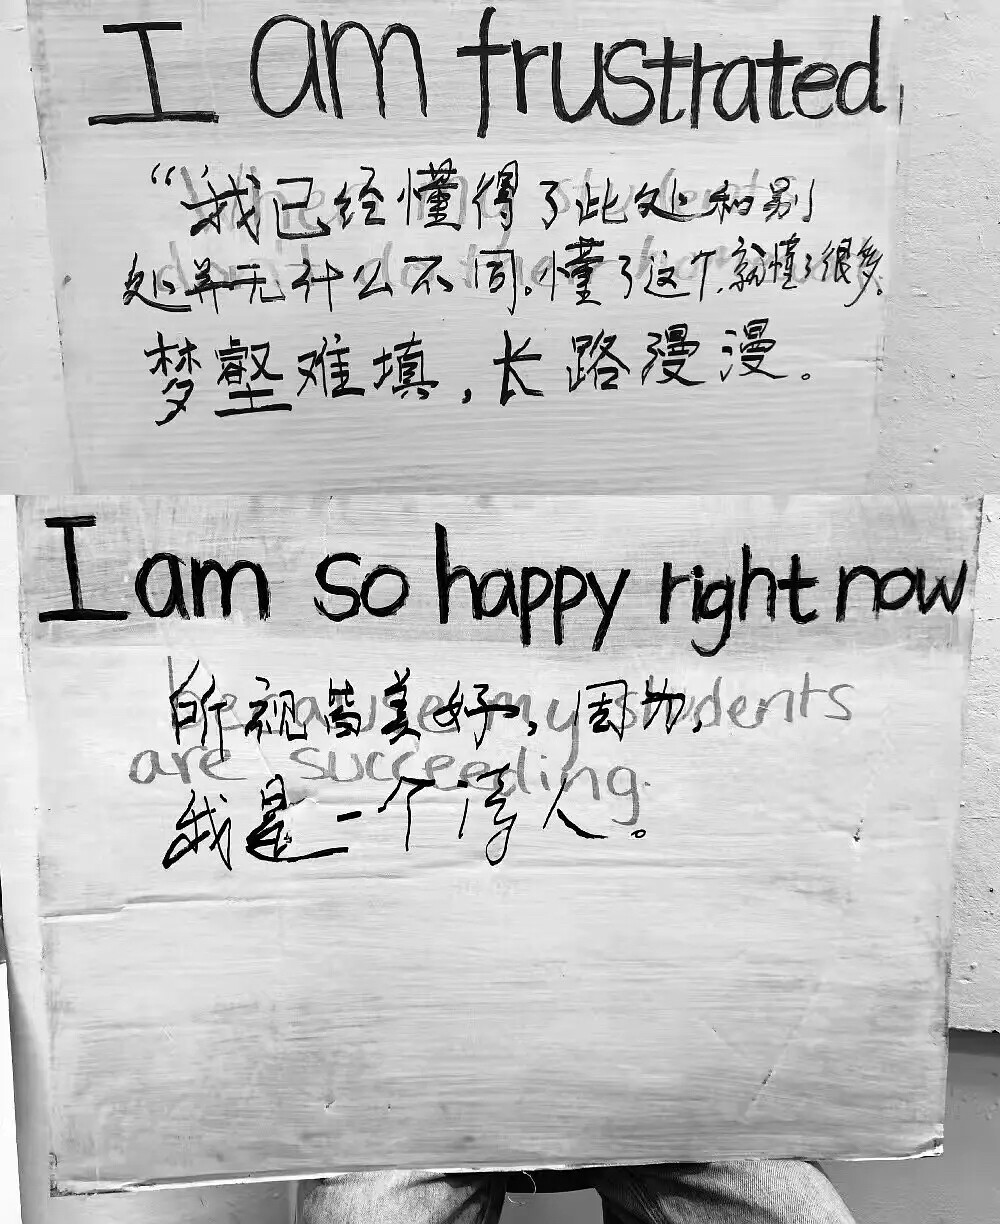 I am frustrated
“我已经懂得了此处和别
处并无什么不同。懂了这个,就懂了很多。
梦壑难填,长路漫漫。
I am so happy right now
because my students
所视皆美好,因为,
are succeeding.
我是一个人。